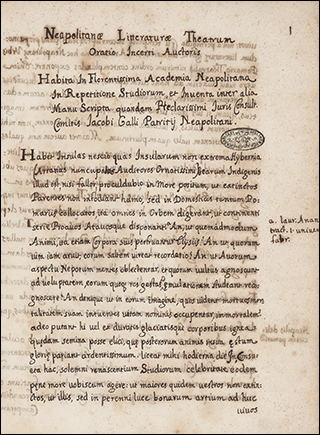 Neapolitanæ Literaturæ Theatrum
Oratio Incerti Auctoris
Habita In Florentissima Academia Neapolitana
In Repetitione Studiorum et Inventa inter alia
Manu Scripta quondam Præclarissimi Iuris Consult
Comitis Jacobi Galli Patritij Neapolitani.
1
Habet Insulas nescio quas Insularum non extrema Hybernia
Auditores Ornatissimi Indigenis
illud est nisi fallor proculdubio in More positum, ut extinctos
Parentes non intodiant humo, sed in Domesticis
collocatos ita omnes in Orbem digerant, ut continenti
serie Proavos Atavosque disponant. An, ut quemadmodum
Animi, ita etiam Corpora suis perfruantur Elysijs? An ut quorum
vim iam avito, eorum saltem vitrae recordatio? An ut Avorum
aspectu Nepotum mentes oblectentur, eorum vultus agnoscunt
ad voluptatem, eorum quoq. res gestas, emulationem studeant reco
gnoscere? An denique ut in eorum Imagine, quos vident mortuos
talitatem suam intuentes vitam nominis occupentur immortalem?
adeo putant hi vel ex diuturis glaciatisque corporibus ignea
quædam semina posse elici, que posterorum animis
gloriæ pariant ardentissimum. liceat mihi hodierna die In Consu
eta hac, solemni renascentium Studiorum celebritate eodem
pene more vobiscum agere: ut maiores quidem vestros non extin
ctos, ut illis, sed in perenni luce bonarum artium ad huc
vivos
a. laur. Anan.
tract. 1. univer.
fabr.